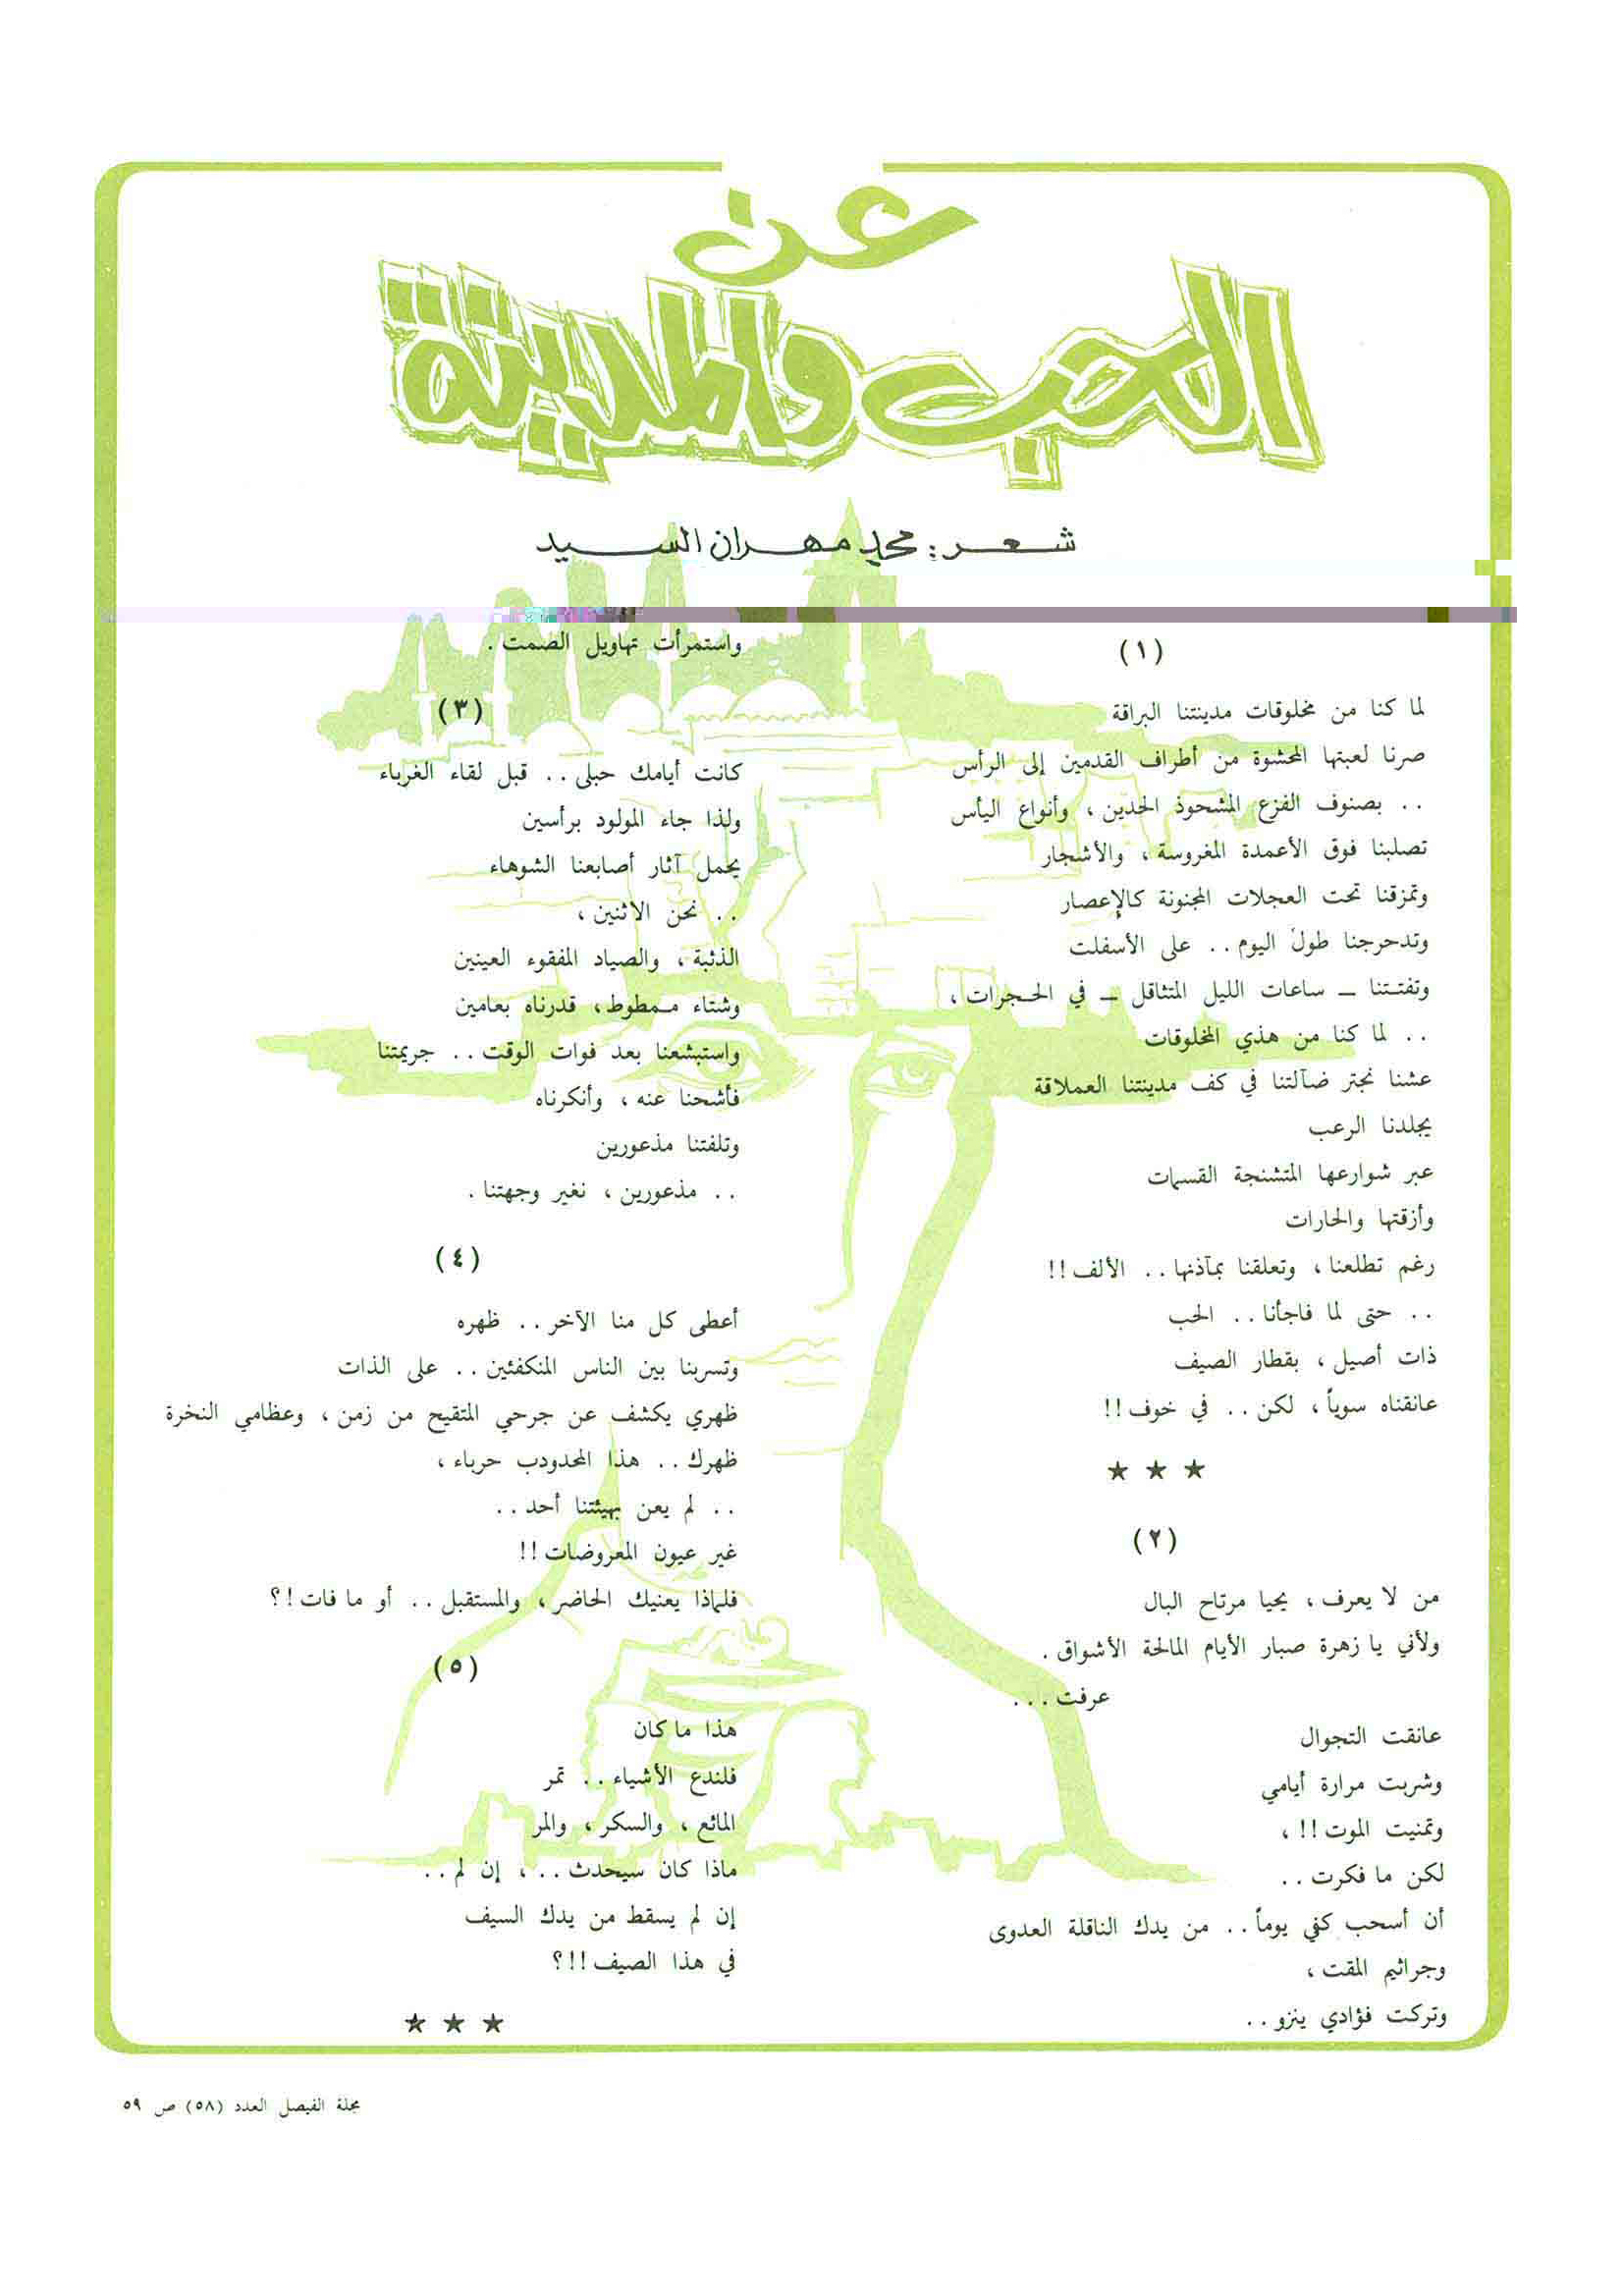 عن
الحب والمدينة
شعر: محمد مهران السيد
(١)
لما كنا من مخلوقات مدينتنا البراقة
صرنا لعبتها المحشوة من أطراف القدمين إلى الرأس
.. بصنوف الفزع المشحوذ الحدين ، وأنواع اليأس
تصلبنا فوق الأعمدة المغروسة ، والأشجار
وتمزقنا تحت العجلات المجنونة كالإعصار
وتدحرجنا طول اليوم .. على الأسفلت
وتفتتنا ــ ساعات الليل المتثاقل ــ في الحجرات ،
.. لما كنا من هذي المخلوقات
عشنا نجتر ضآلتنا في كف مدينتنا العملاقة
يجلدنا الرعب
عبر شوارعها المتشنجة القسمات
وأزقتها والحارات
رغم تطلعنا ، وتعلقنا بمآذنها .. الألف !!
.. حتى لما فاجأنا .. الحب
ذات أصيل ، بقطار الصيف
عانقناه سوياً ، لكن .. في خوف !!
★ ★ ★
(٢)
من لا يعرف ، يحيا مرتاح البال
ولأني يا زهرة صبار الأيام المالحة الأشواق .
عرفت ...
عانقت التجوال
وشربت مرارة أيامي
وتمنيت الموت !! ،
لكن ما فكرت ..
أن أسحب كفي يوماً .. من يدك الناقلة العدوى
وجراثيم المقت ،
وتركت فؤادي ينزو ..
واستمرأت تهاويل الصمت .
(٣)
كانت أيامك حبلى .. قبل لقاء الغرباء
ولذا جاء المولود برأسين
يحمل آثار أصابعنا الشوهاء
.. نحن الاثنين ،
الذئبة ، والصياد المفقوء العينين
وشتاء ممطوط ، قدرناه بعامين
واستبشعنا بعد فوات الوقت .. جريمتنا
فأشحنا عنه ، وأنكرناه
وتلفتنا مذعورين
.. مذعورين ، نغير وجهتنا .
(٤)
أعطى كل منا الآخر .. ظهره
وتسربنا بين الناس المنكفئين .. على الذات
ظهري يكشف عن جرحي المتقيح من زمن ، وعظامي النخرة
ظهرك .. هذا المحدودب حرباء ،
.. لم يعن بهيئتنا أحد ..
غير عيون المعروضات !!
فلماذا يعنيك الحاضر ، والمستقبل .. أو ما فات !؟
(٥)
هذا ما كان
فلندع الأشياء .. تمر
المائع ، والسكر ، والمر
ماذا كان سيحدث .. ، إن لم ..
إن لم يسقط من يدك السيف
في هذا الصيف !!؟
★ ★ ★
مجلة الفيصل العدد (٥٨) ص ٥٩